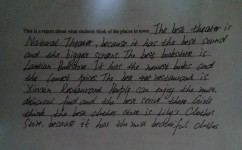 This is a report about what students think of the places in town. The best theater is
National Theater, because it has the best sound
and the bigger screens. The best bookstore is
Bookstore. It has the newest books and
the lowest price. The best restaurant is
Restaurant. People can enjoy the most
delicious food and the best service there. Girls
think the best clothes store is Lily's Clothes
Store because it has the most beautiful clothes